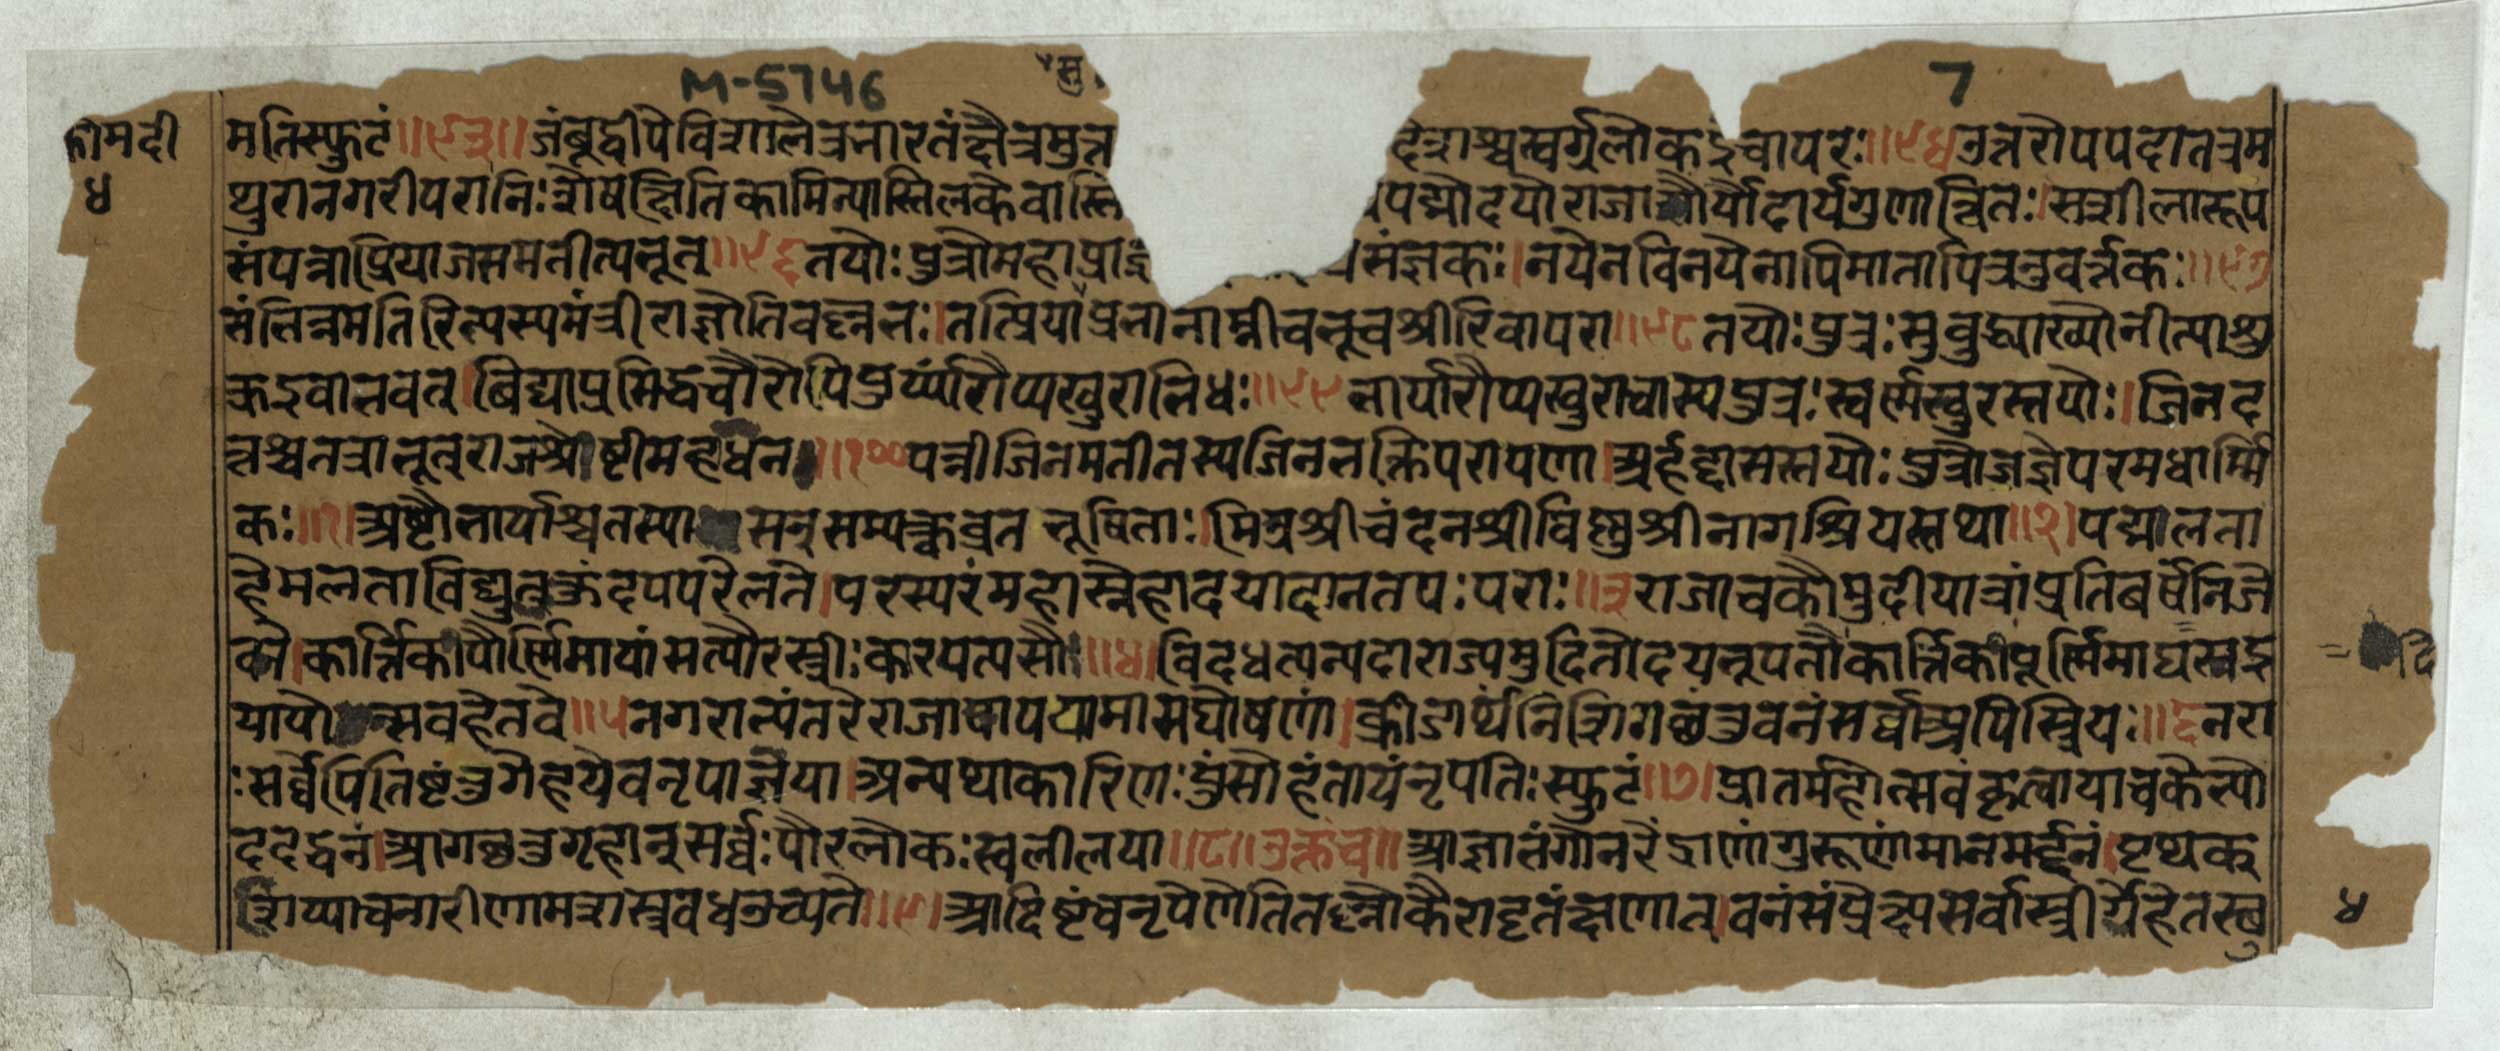 M-5746
7
कौमदी
४
मतिस्फुटं॥९३॥जंबूद्वीपेविशालेत्रभारतंक्षेत्रमुत्त देशश्चस्वर्गलोकइवापरः॥९४उत्तरोपपदातत्रम
थुरानगरीपरानिःशेषक्षितिकामिन्यास्तिलकेवास्ति पद्मोदयोराजाशौर्यौदार्यगुणान्वितः।सशीलारूप
संपन्नाप्रियाजसमतीत्यभूत्॥९६तयोः पुत्रोमहाप्रा संज्ञकः।नयेनविनयेनापिमातापित्रनुवर्त्तकः॥९७
संभिन्नमतिरित्यस्यमंत्रीराज्ञोतिवल्लभः।तत्प्रियाप्रभानाम्नीबभूवश्रीरिवापरा॥९८तयोःपुत्रःसुबुद्ध्याख्योनीत्याशु
क्रइवाभवत्।बिद्याप्रसिद्धचौरोपिपुर्य्यांरौप्यखुराभिधः॥९९भार्यारौप्यखुराचास्यपुत्रःस्वर्णखुरस्तयोः।जिनद
त्तश्चतत्राभूत्राजश्रेष्टीमहाधन॥१००पत्नीजिनमतीतस्यजिनभक्तिपरायणा।अर्हद्दासस्तयोःपुत्रोजज्ञेपरमधार्म्मि
कः॥१।अष्टौभार्याश्चतस्यासन्सम्यक्त्वव्रतभूषिताः।मित्रश्रीचंदनश्रीविष्णुश्रीनागश्रियस्तथा॥२।पद्मालता
हेमलताविद्युत्कुंदपपरेलते।परस्परंमहास्नेहादयादानतपःपराः॥३राजाचकौमुदीयात्रांप्रतिबर्षेनिजे
वने।कार्त्तिकीपौर्णिमायांसत्पौरस्त्रीःकारयत्यसौ॥४।विदधत्यन्यदाराज्यमुदितोदयभूपतौकार्त्तिकीपूर्णिमाघस्र
यापौ त्सवहेतवे॥५नगराभ्यंतरेराजादापयामासघोषणां।क्रीडार्थंनिशिगच्छंतुवनंसर्वाअपिस्त्रियः॥६नरा
ःसर्वेपितिष्टंतुगेहयेवनृपाज्ञया।अन्यथाकारिणःपुंसोहंतायंनृपतिःस्फुटं॥७।प्रातर्महोत्सवंकृत्वायाचकेभ्यो
ददद्धनं।आगच्छतुगृहान्सर्वःपौरलोकःस्वलीलया॥८॥उक्तंच॥आज्ञाभंगोनरेंद्राणांगुरूणांमानमर्द्दनं।पृथक्
शय्याचनारीणामशस्त्रवधउच्यते॥९।आदिष्टंचनृपेणेतितल्लोकैरादृतंक्षणात्।वनंसंप्रेक्ष्यसर्वास्त्रीर्गेहेतस्थु
४